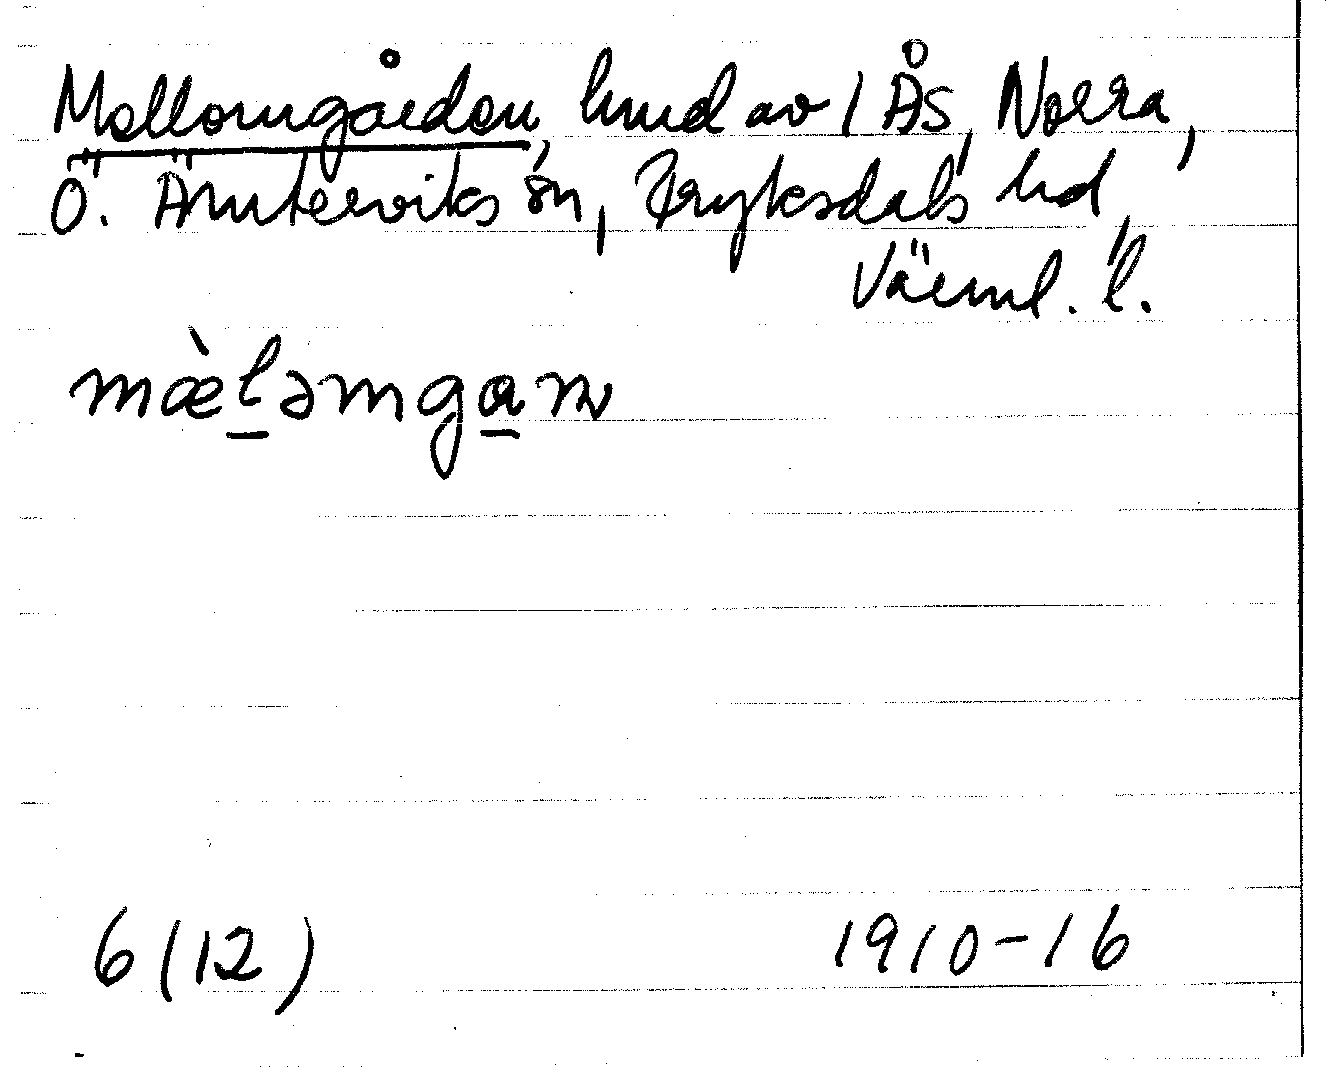 Mellomgården, hmd av 1 Ås, Norra,
Ö. Ämterviks sn, Fryksdals hd,
Värml. l.
mæ̀l̠əmga̠ɳ
6(12) 1910-16